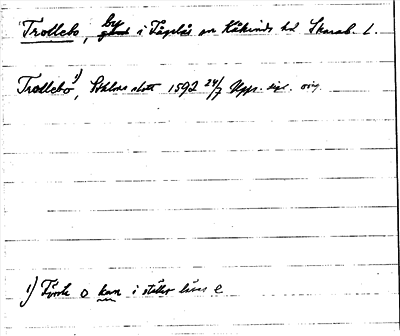 Trollebo, by i Fågelås sn Kåkinds hd Skarab. l.
Trollebo 1), Sthlms slott 1592 24/7 Upps. dipl. orig.
1) Första o kan i stället läsas e